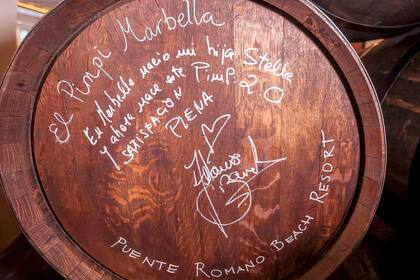 El Pimpi Marbella
En Marbella nacio mi hija Stella
y ahora nace este Pimpi 2.0
SATISFACCION
PLENA
Antonio
Banderas
PUENTE ROMANO BEACH RESORT